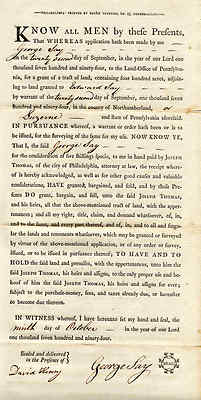 KNOW ALL MEN by these Presents,
That WHEREAS application hath been made by me
George Say
on the twenty second day of September, in the year of our Lord one
thousand seven hundred and ninety-four, to the Land-Office of Pennsylva-
nia, for a grant of a tract of land, containing four hundred acres, adjoin-
ing to land granted to Edward Say
by Warrant the twenty second day of September, one thousand seven
hundred and ninety-four, in the county of Northumberland,
Luzerne and State of Pennsylvania aforesaid.
IN PURSUANCE whereof, a warrant or order hath been or is to
be issued, for the surveying of the same for my use. NOW KNOW YE,
That I, the said George Say
for the consideration of five shillings specie, to me in hand paid by JOSEPH
THOMAS, of the city of Philadelphia, attorney at law, the receipt where-
of is hereby acknowledged, as well as for other good causes and valuable
considerations, HAVE granted, bargained, and sold, and by these Pre-
sents DO grant, bargain, and sell, unto the said JOSEPH THOMAS, and
his heirs, all that the above-mentioned tract of land, with the appur-
tenances; and all my right, title, claim, and demand whatsoever, of, in,
and to the same, and every part thereof, and of, in, and to all and singu-
lar the lands and tenements whatsoever, which may be granted or surveyed
by virtue of the above-mentioned application, or of any order or survey,
issued, or to be issued in pursuance thereof; TO HAVE AND TO
HOLD the said land and premises, with the appurtenances, unto him the
said JOSEPH THOMAS, his heirs and assigns, to the only proper use and be-
hoof of him the said JOSEPH THOMAS, his heirs and assigns for ever;
subject to the purchase-money, fees, and taxes already due, or hereafter
to become due thereon.
IN WITNESS whereof, I have hereunto set my hand and seal, the
ninth day of October in the year of our Lord
one thousand seven hundred and ninety-four.
Sealed and delivered
in the Presence of
George Say
David